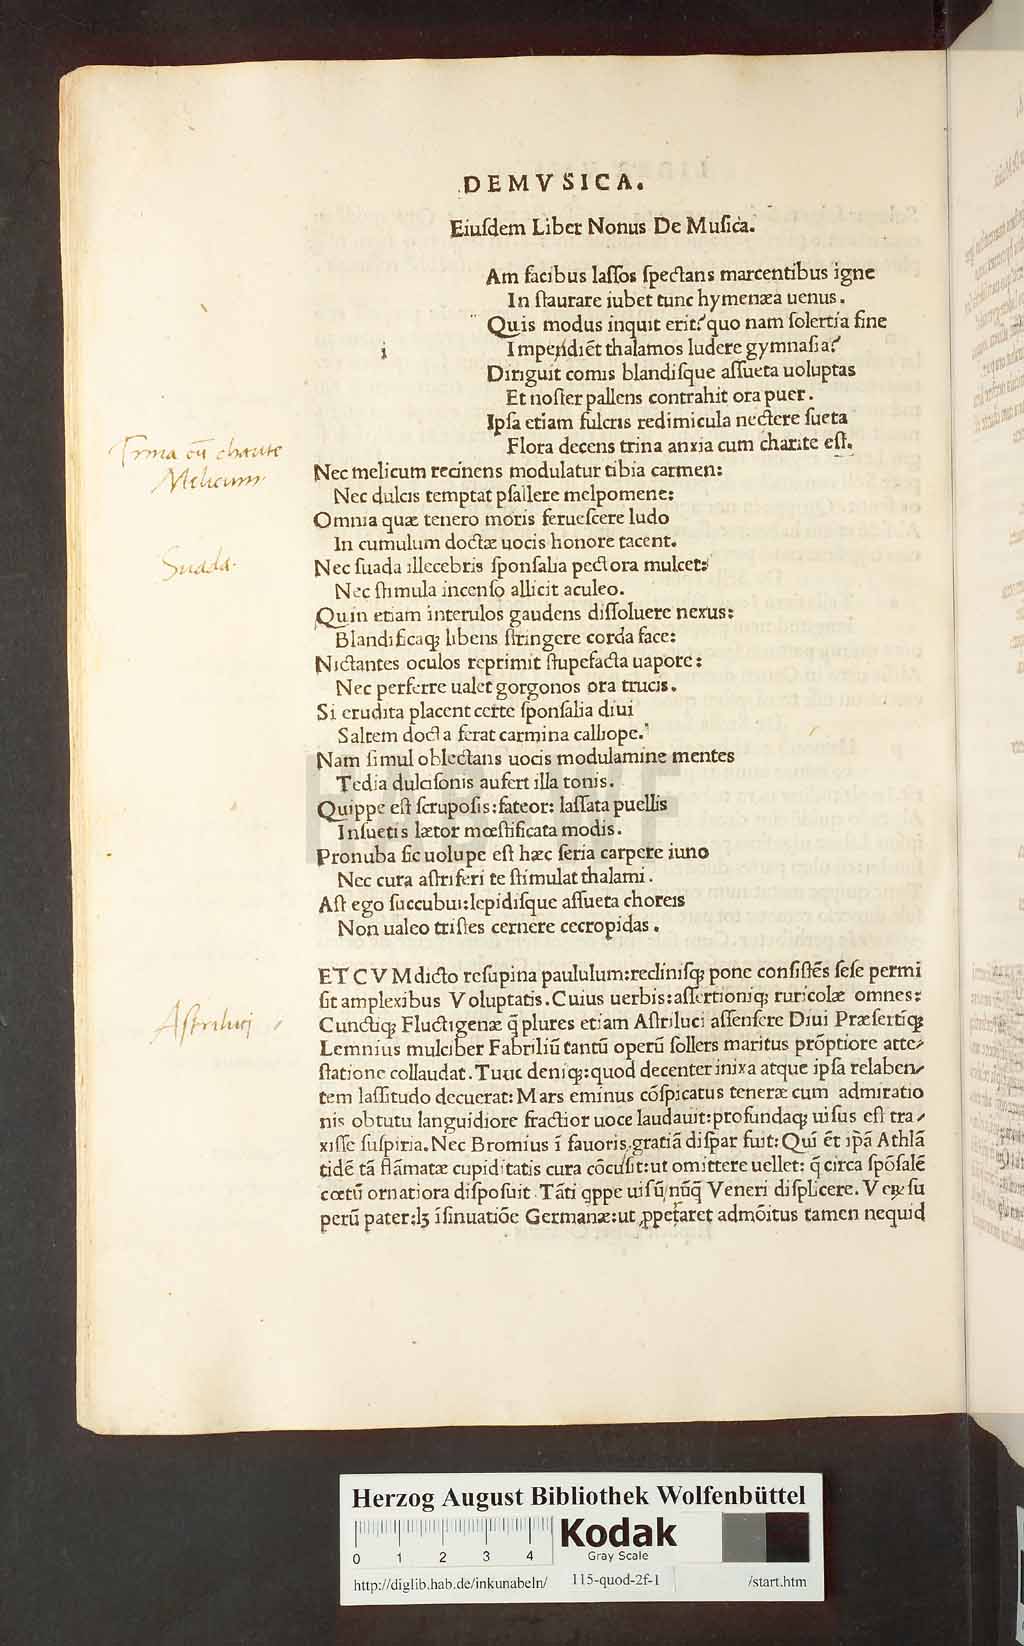 DEMVSICA.
Eiuſdem Liber Nonus De Muſica.
i
Am facibus laſſos ſpectans marcentibus igne
In ſtaurare iubet tunc hymenæa uenus.
Quis modus inquit erit? quo nam ſolertia fine
Impendiēt thalamos ludere gymnaſia?
Diriguit comis blandiſque aſſueta uoluptas
Et noſter pallens contrahit ora puer.
Ipſa etiam fulcris redimicula nectere ſueta
Flora decens trina anxia cum charite eſt.
Trina cū charite
Melicum
Nec melicum recinens modulatur tibia carmen:
Nec dulcis temptat pſallere melpomene:
Omnia quæ tenero moris ferueſcere ludo
In cumulum doctæ uocis honore tacent.
Suada.
Nec ſuada illecebris ſponſalia pectora mulcet:
Nec ſtimula incenſo allicit aculeo.
Quin etiam interulos gaudens diſſoluere nexus:
Blandificaq; libens ſtringere corda face:
Nictantes oculos reprimit ſtupefacta uapore:
Nec perferre ualet gorgonos ora trucis.
Si erudita placent certe ſponſalia diui
Saltem docta ferat carmina calliope.
Nam ſimul oblectans uocis modulamine mentes
Tedia dulciſonis aufert illa tonis.
Quippe eſt ſcrupoſis: fateor: laſſata puellis
Inſuetis lætor mœſtificata modis.
Pronuba ſic uolupe eſt hæc ſeria carpere iuno
Nec cura aſtriferi te ſtimulat thalami.
Aſt ego ſuccubui: lepidiſque aſſueta choreis
Non ualeo triſtes cernere cecropidas.
ETCVM dicto reſupina paululum: recliniſq; pone conſiſtēs ſeſe permi
ſit amplexibus Voluptatis. Cuius uerbis: aſſertioniq; ruricolæ omnes:
Astriluci
Cunctiq; Fluctigenæ q̄ plures etiam Aſtriluci aſſenſere Diui Præſertiq;
Lemnius mulciber Fabriliū tantū operū ſollers maritus prōptiore atte-
ſtatione collaudat. Tunc deniq;: quod decenter inixa atque ipſa relaben-
tem laſſitudo decuerat: Mars eminus cōſpicatus teneræ cum admiratio
nis obtutu languidiore fractior uoce laudauit: profundaq; uiſus eſt tra-
xiſſe ſuſpiria. Nec Bromius ī fauoris gratiā diſpar fuit: Quī ēt ip̄ā Athlā
tidē tā flāmatæ cupiditatis cura cōcuſit: ut omittere uellet: q̄ circa ſpōſalē
cœtū ornatiora diſpoſuit. Tāti qppe uiſū nūq̄ Veneri diſplicere. Veꝝ ſu
perū pater: lꝫ īſinuatiōe Germanæ: ut ꝓpeṛaret admōitus tamen nequid
HAB WF
Herzog August Bibliothek Wolfenbüttel
0 1 2 3 4
Kodak
Gray Scale
http://diglib.hab.de/inkunabeln/ 115-quod-2f-1 /start.htm